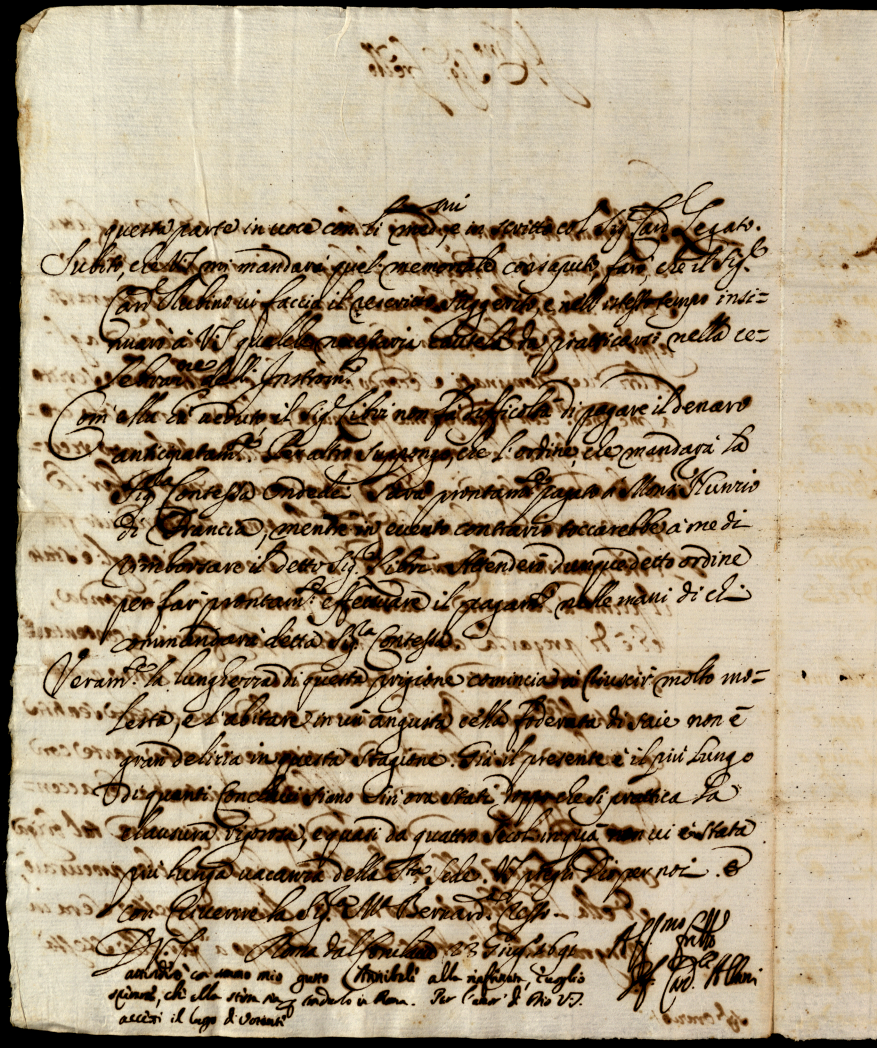 questa parte in voce con li med.mi, e in scritto col Sig.r Card. Legato.
Subito, che V.S. mi mandarà quel memoriale consaputo, farò, che il Sig.r
Card. Rubino vi faccia il rescritto suggerito, e nell'istesso tempo insi=
nuarò à V.S. qualche necessaria cautela da pratticarsi nella ce=
lebraz.ne delli Instrom.ti
Com'ella hà veduto il Sig.r Libri non fà difficoltà di pagare il denaro
anticipatam.te. Per altro suppongo, che l'ordine, che mandarà la
Sig.ra Contessa Ondedei sarà prontam.te pagato da Mons.r Nunzio
di Francia, mentre in evento contrario toccarebbe à me di
rimborsare il detto Sig.r Libri. Attenderò dunque detto ordine
per far prontam.te effettuare il pagam.to nelle mani di chi
comandarà detta Sig.ra Contessa.
Veram.te la lunghezza di questa prigione comincia à riuscir molto mo=
lesta, e l'abitare in un'angusta cella foderata di saie non è
gran delizia in questa stagione. Già il presente è il più lungo
di quanti Conclavi siano sin'ora stati, doppo che si prattica la
clausura rigorosa, e quasi da quattro secoli in quà non vi è stata
più lunga vacanza della S.ta Sede. V.S. preghi Dio per noi. E
con riverire la Sig.ra M.a Bernard.a resto
D. V.S. Roma dal Conclave 23 Giug.o 1691
Aff.mo
fr͞ello
Card.le Albani
con sommo mio gusto Annibale alla
ch'ella stima in Roma. Per l'amor di Dio V.S.
il luogo di